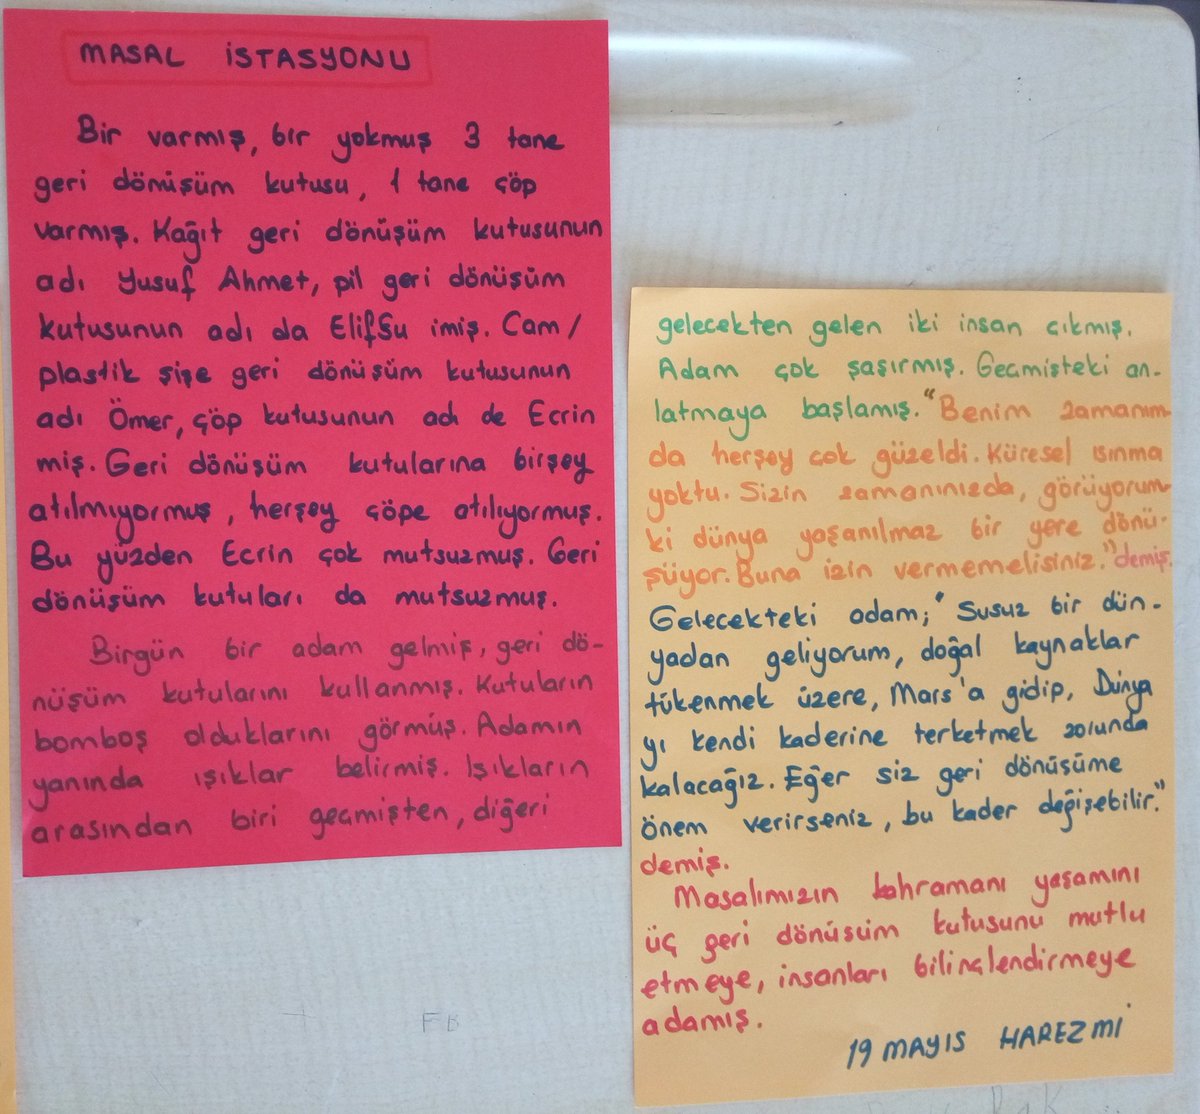 MASAL İSTASYONU
Bir varmış, bir yokmuş 3 tane
geri dönüşüm kutusu, 1 tane çöp
varmış. Kağıt geri dönüşüm kutusunun
adı Yusuf Ahmet, pil geri dönüşüm
kutusunun adı da ElifSu imiş. Cam/
plastik şişe geri dönüşüm kutusunun
adı Ömer, çöp kutusunun adı de Ecrin
miş. Geri dönüşüm kutularına birşey
atılmıyormuş, herşey çöpe atılıyormuş.
Bu yüzden Ecrin çok mutsuzmuş. Geri
dönüşüm kutuları da mutsuzmuş.
Birgün bir adam gelmiş, geri dö-
nüşüm kutularını kullanmış. Kutuların
bomboş olduklarını görmüş. Adamın
yanında ışıklar belirmiş. Işıkların
arasından biri geçmişten, diğeri
gelecekten gelen iki insan çıkmış.
Adam çok şaşırmış. Geçmişteki an-
latmaya başlamış. "Benim zamanım-
da herşey çok güzeldi. Küresel ısınma
yoktu. Sizin zamanınızda, görüyorum-
ki dünya yaşanılmaz bir yere dönü-
şüyor. Buna izin vermemelisiniz." demiş.
Gelecekteki adam; "Susuz bir dün-
yadan geliyorum, doğal kaynaklar
tükenmek üzere, Mars'a gidip, Dünya
yı kendi kaderine terketmek zorunda
kalacağız. Eğer siz geri dönüşüme
önem verirseniz, bu kader değişebilir."
demiş.
Masalımızın kahramanı yaşamını
üç geri dönüşüm kutusunu mutlu
etmeye, insanları bilinçlendirmeye
adamış.
19 MAYIS HAREZMİ
FB